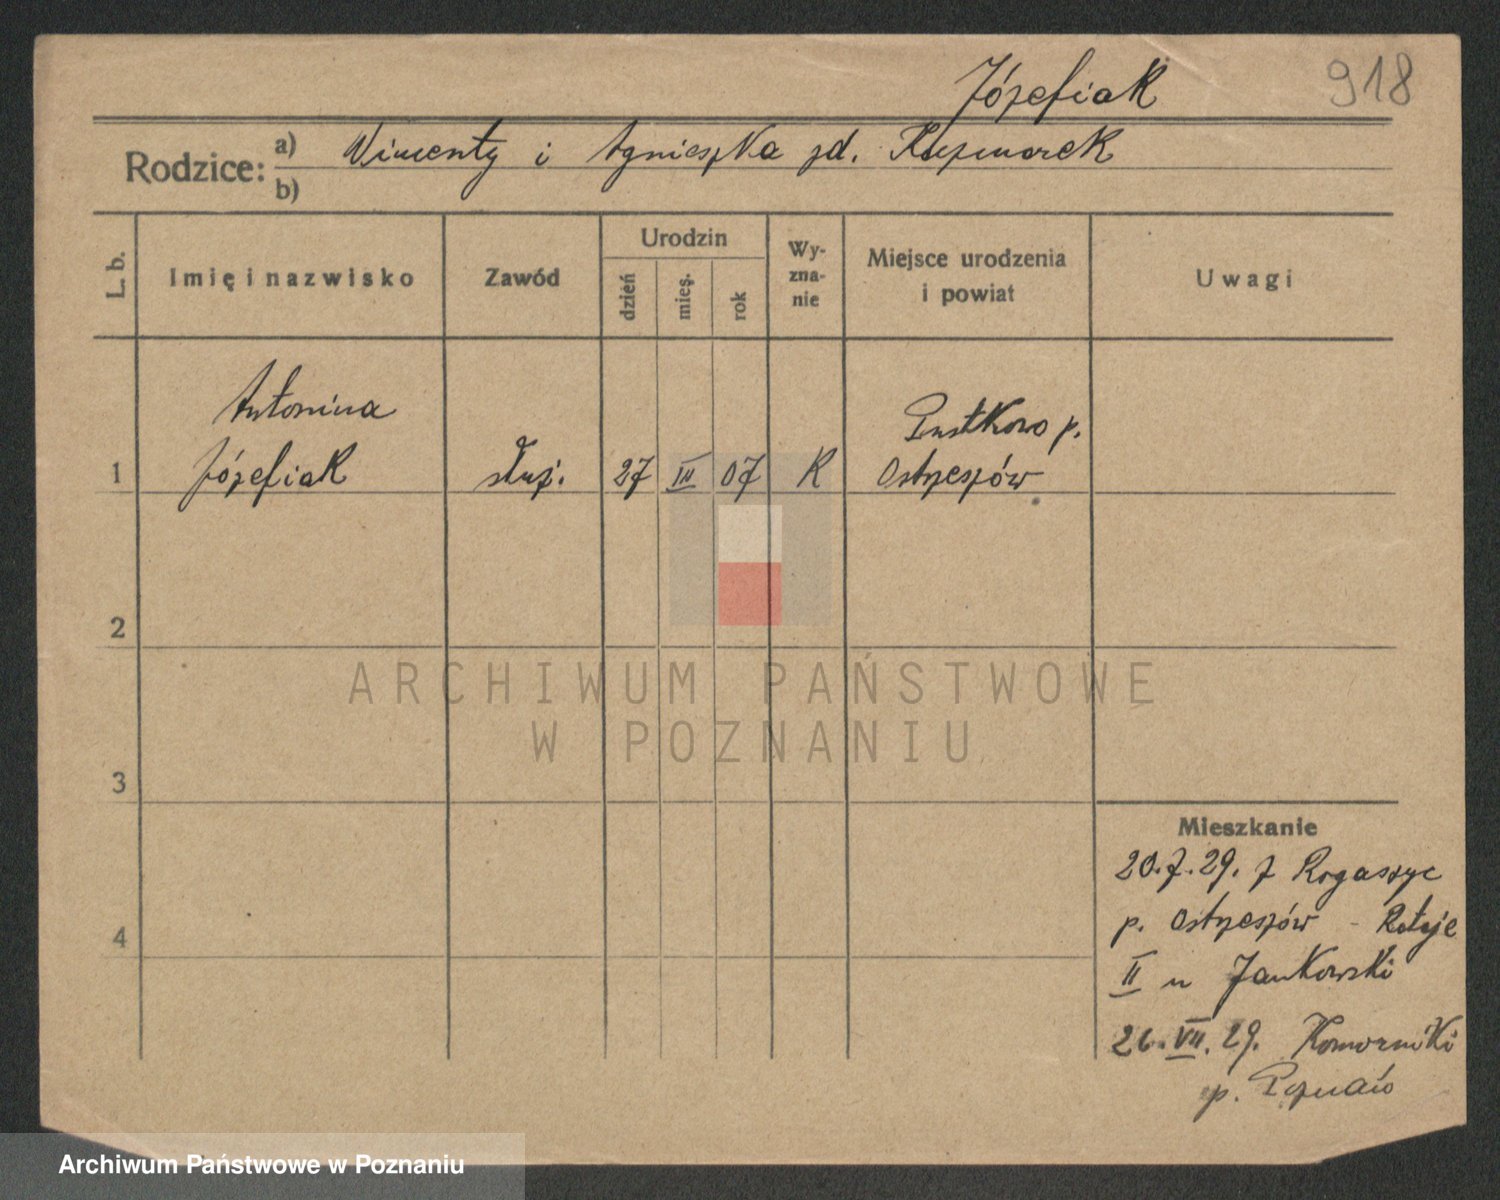 Józefiak 918
Rodzice: a) Wincenty i Agnieszka zd. Kaczmarek
b)
L. b. Imię i nazwisko Zawód Urodzin dzień mieś. rok Wy-zna-nie Miejsce urodzenia i powiat Uwagi
Antonina
Józefiak
1 służ. 27 III 07 K Pustkowo p.
Ostrzeszów
2
ARCHIWUM PAŃSTWOWE
W POZNANIU
3
Mieszkanie
20.7.29. z Rogaszyc
p. Ostrzeszów - Rataje
II u Jankowski
4
26.VII.29. Komorniki
p. Poznań
Archiwum Państwowe w Poznaniu